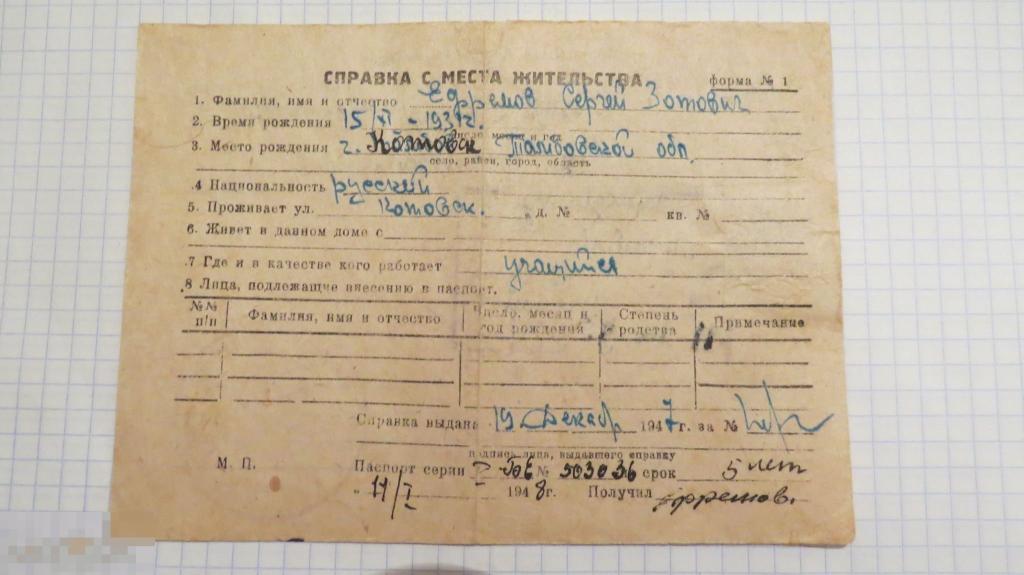 СПРАВКА С МЕСТА ЖИТЕЛЬСТВА
форма № 1
1. Фамилия, имя и отчество Ефремов Сергей Зотович
2. Время рождения 15/XI - 1931г.
число, месяц и год
3. Место рождения г. Котовск Тамбовской обл.
село, район, город, область
4 Национальность русский
5. Проживает ул. Котовск. д. № кв. №
6. Живет в данном доме с
7 Где и в качестве кого работает учащийся
8 Лица, подлежащие внесению в паспорт.
№№ п/п Фамилия, имя и отчество Число, месяц и год рождения Степень родства Примечание
Справка выдана 19 Декабр 1947 г. за №
подпись лица, выдавшего справку
М. П. Паспорт серии № 503036 срок 5 лет
11/I 1948 г. Получил Ефремов.